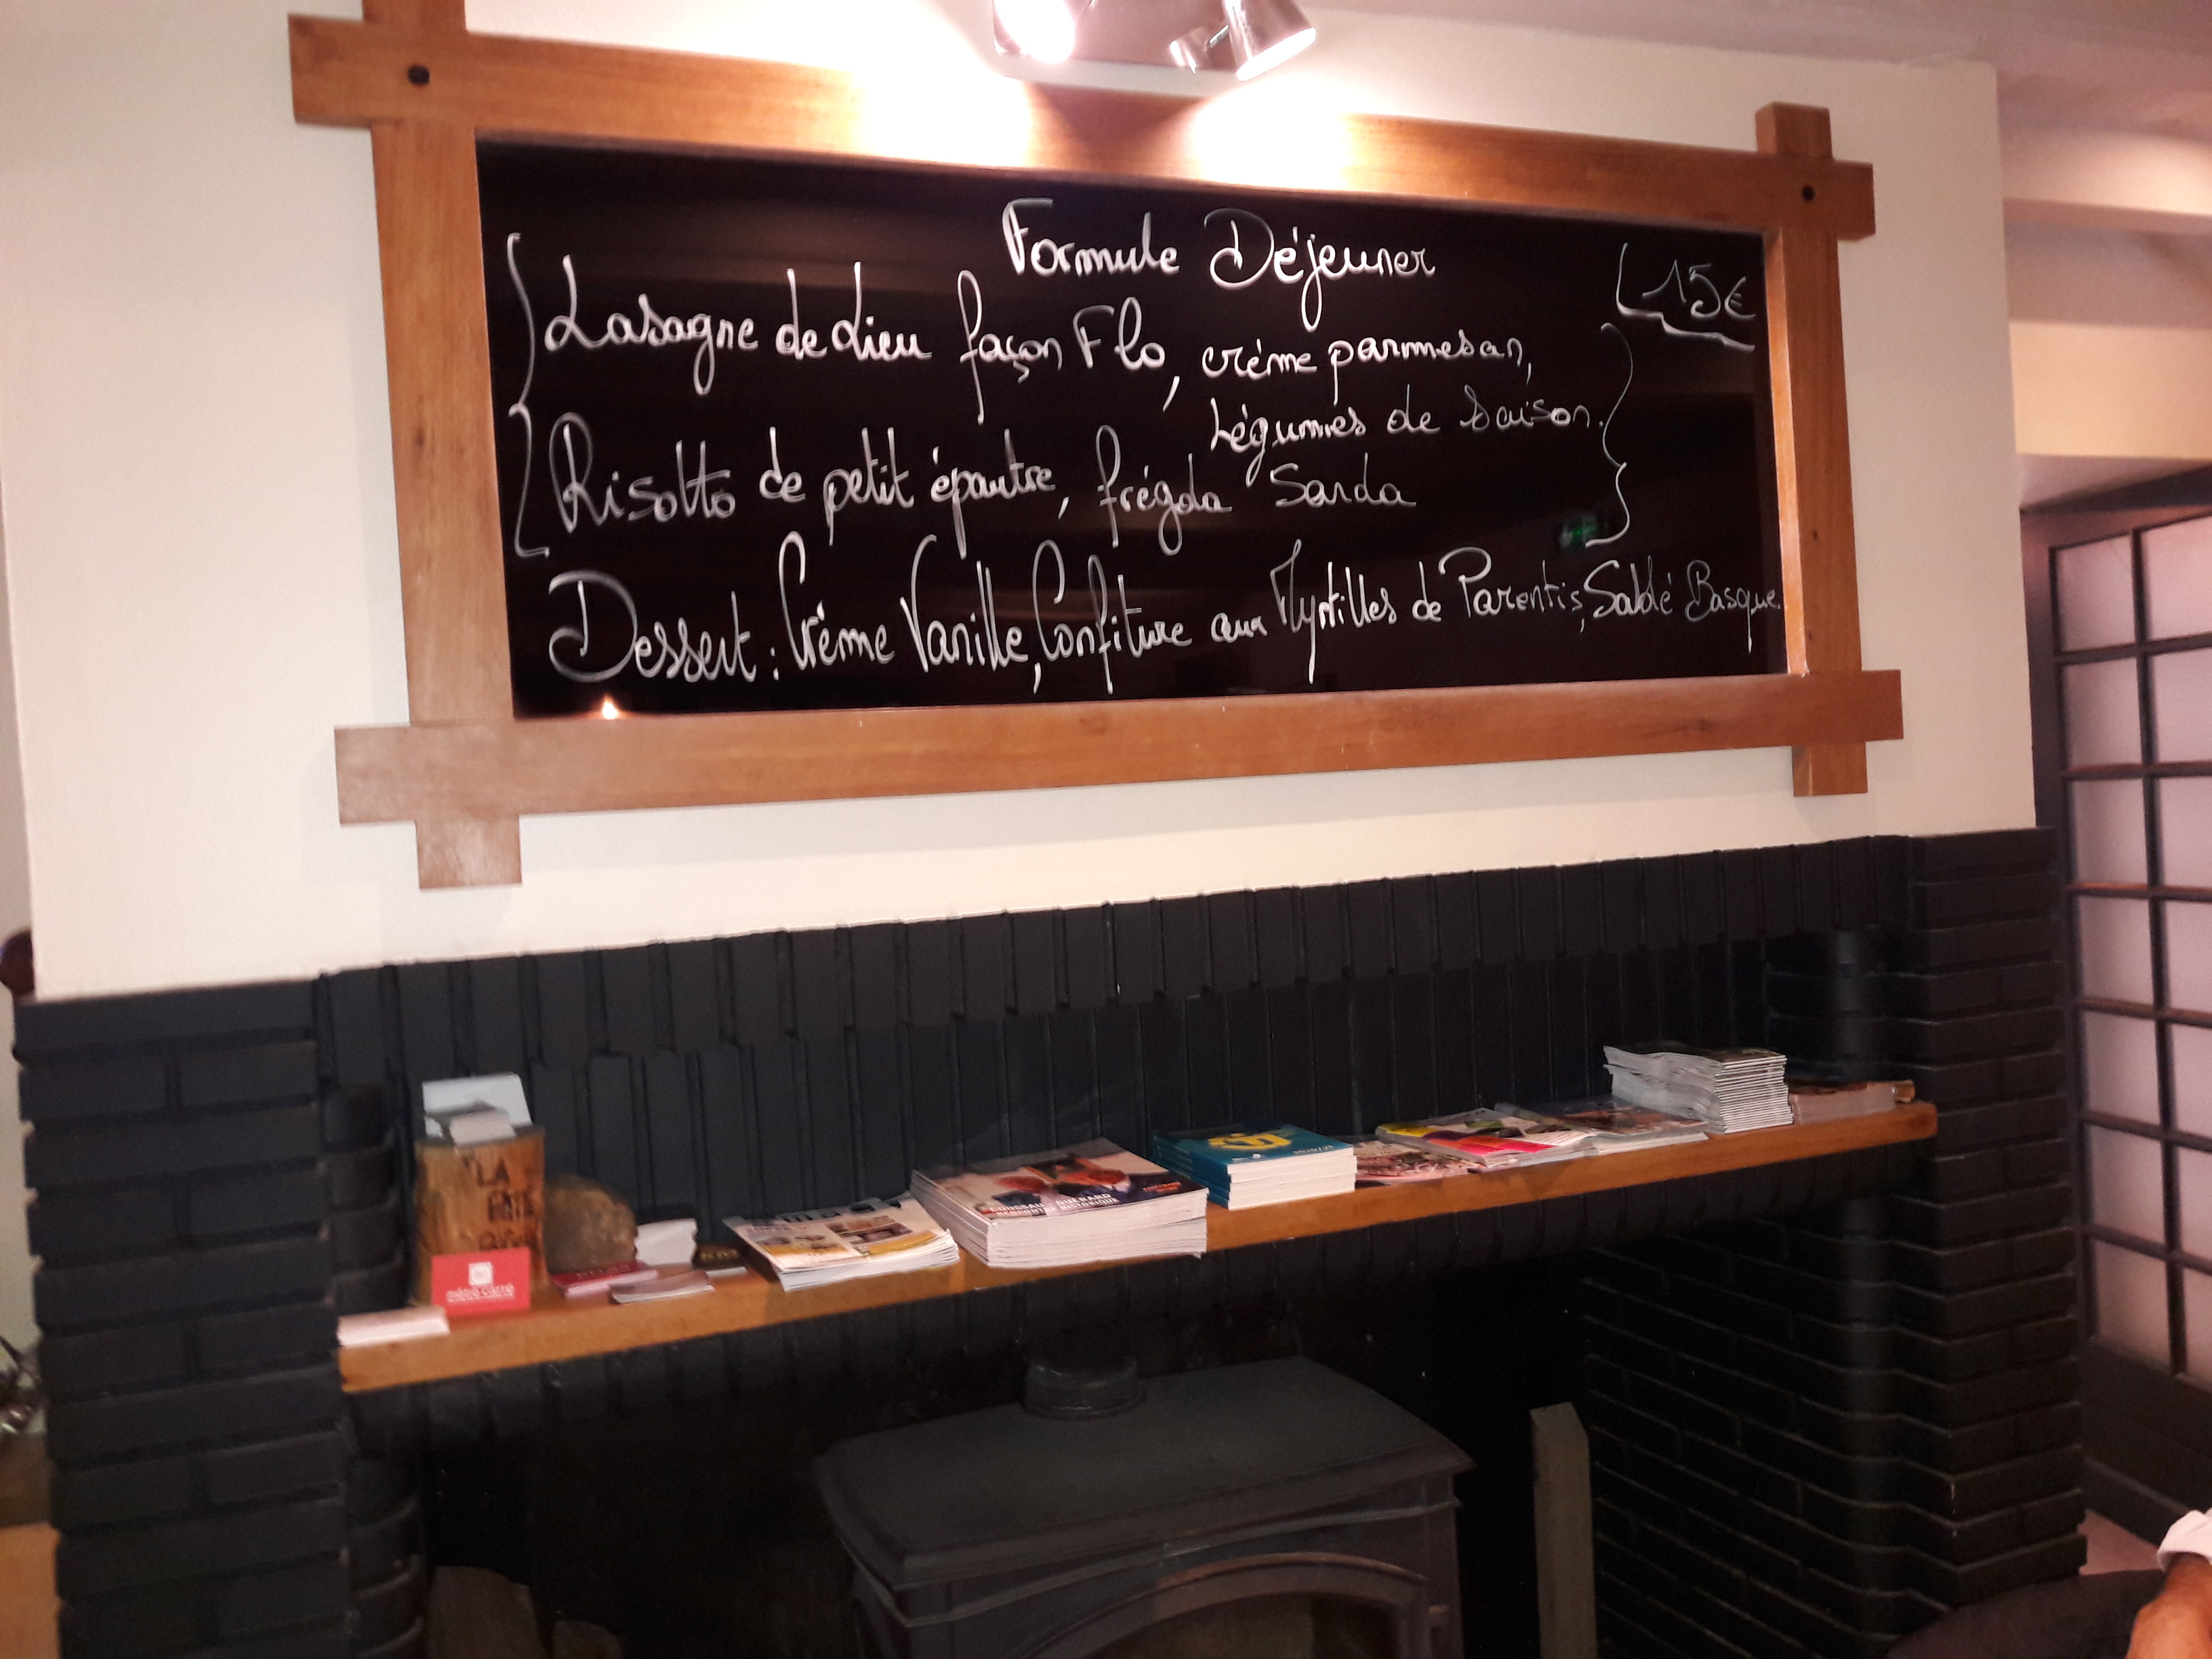 Formule Déjeuner
15€
Lasagne de Lieu façon Flo, crème parmesan,
Légumes de saison.
Risotto de petit épautre, frégola Sarda
Dessert : Crème Vanille, Confiture aux Myrtilles de Parentis, Sablé Basque.
LA
mètre carré
GUÉRARD
HISTORIQUE